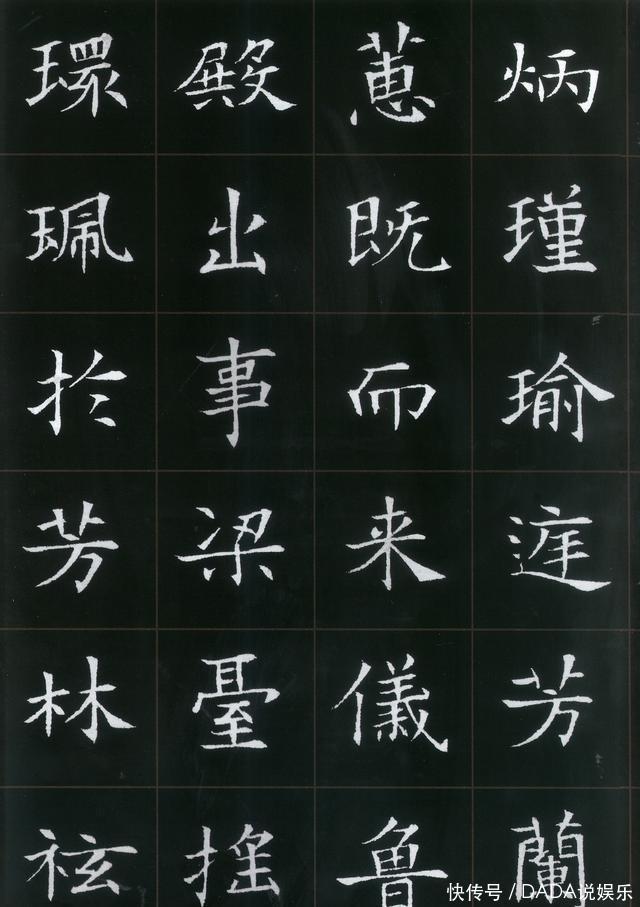 炳瑾瑜庭芳蘭
蕙既而来儀魯
殿出事梁臺搖
環珮於芳林袨
快传号／DADA说娱乐